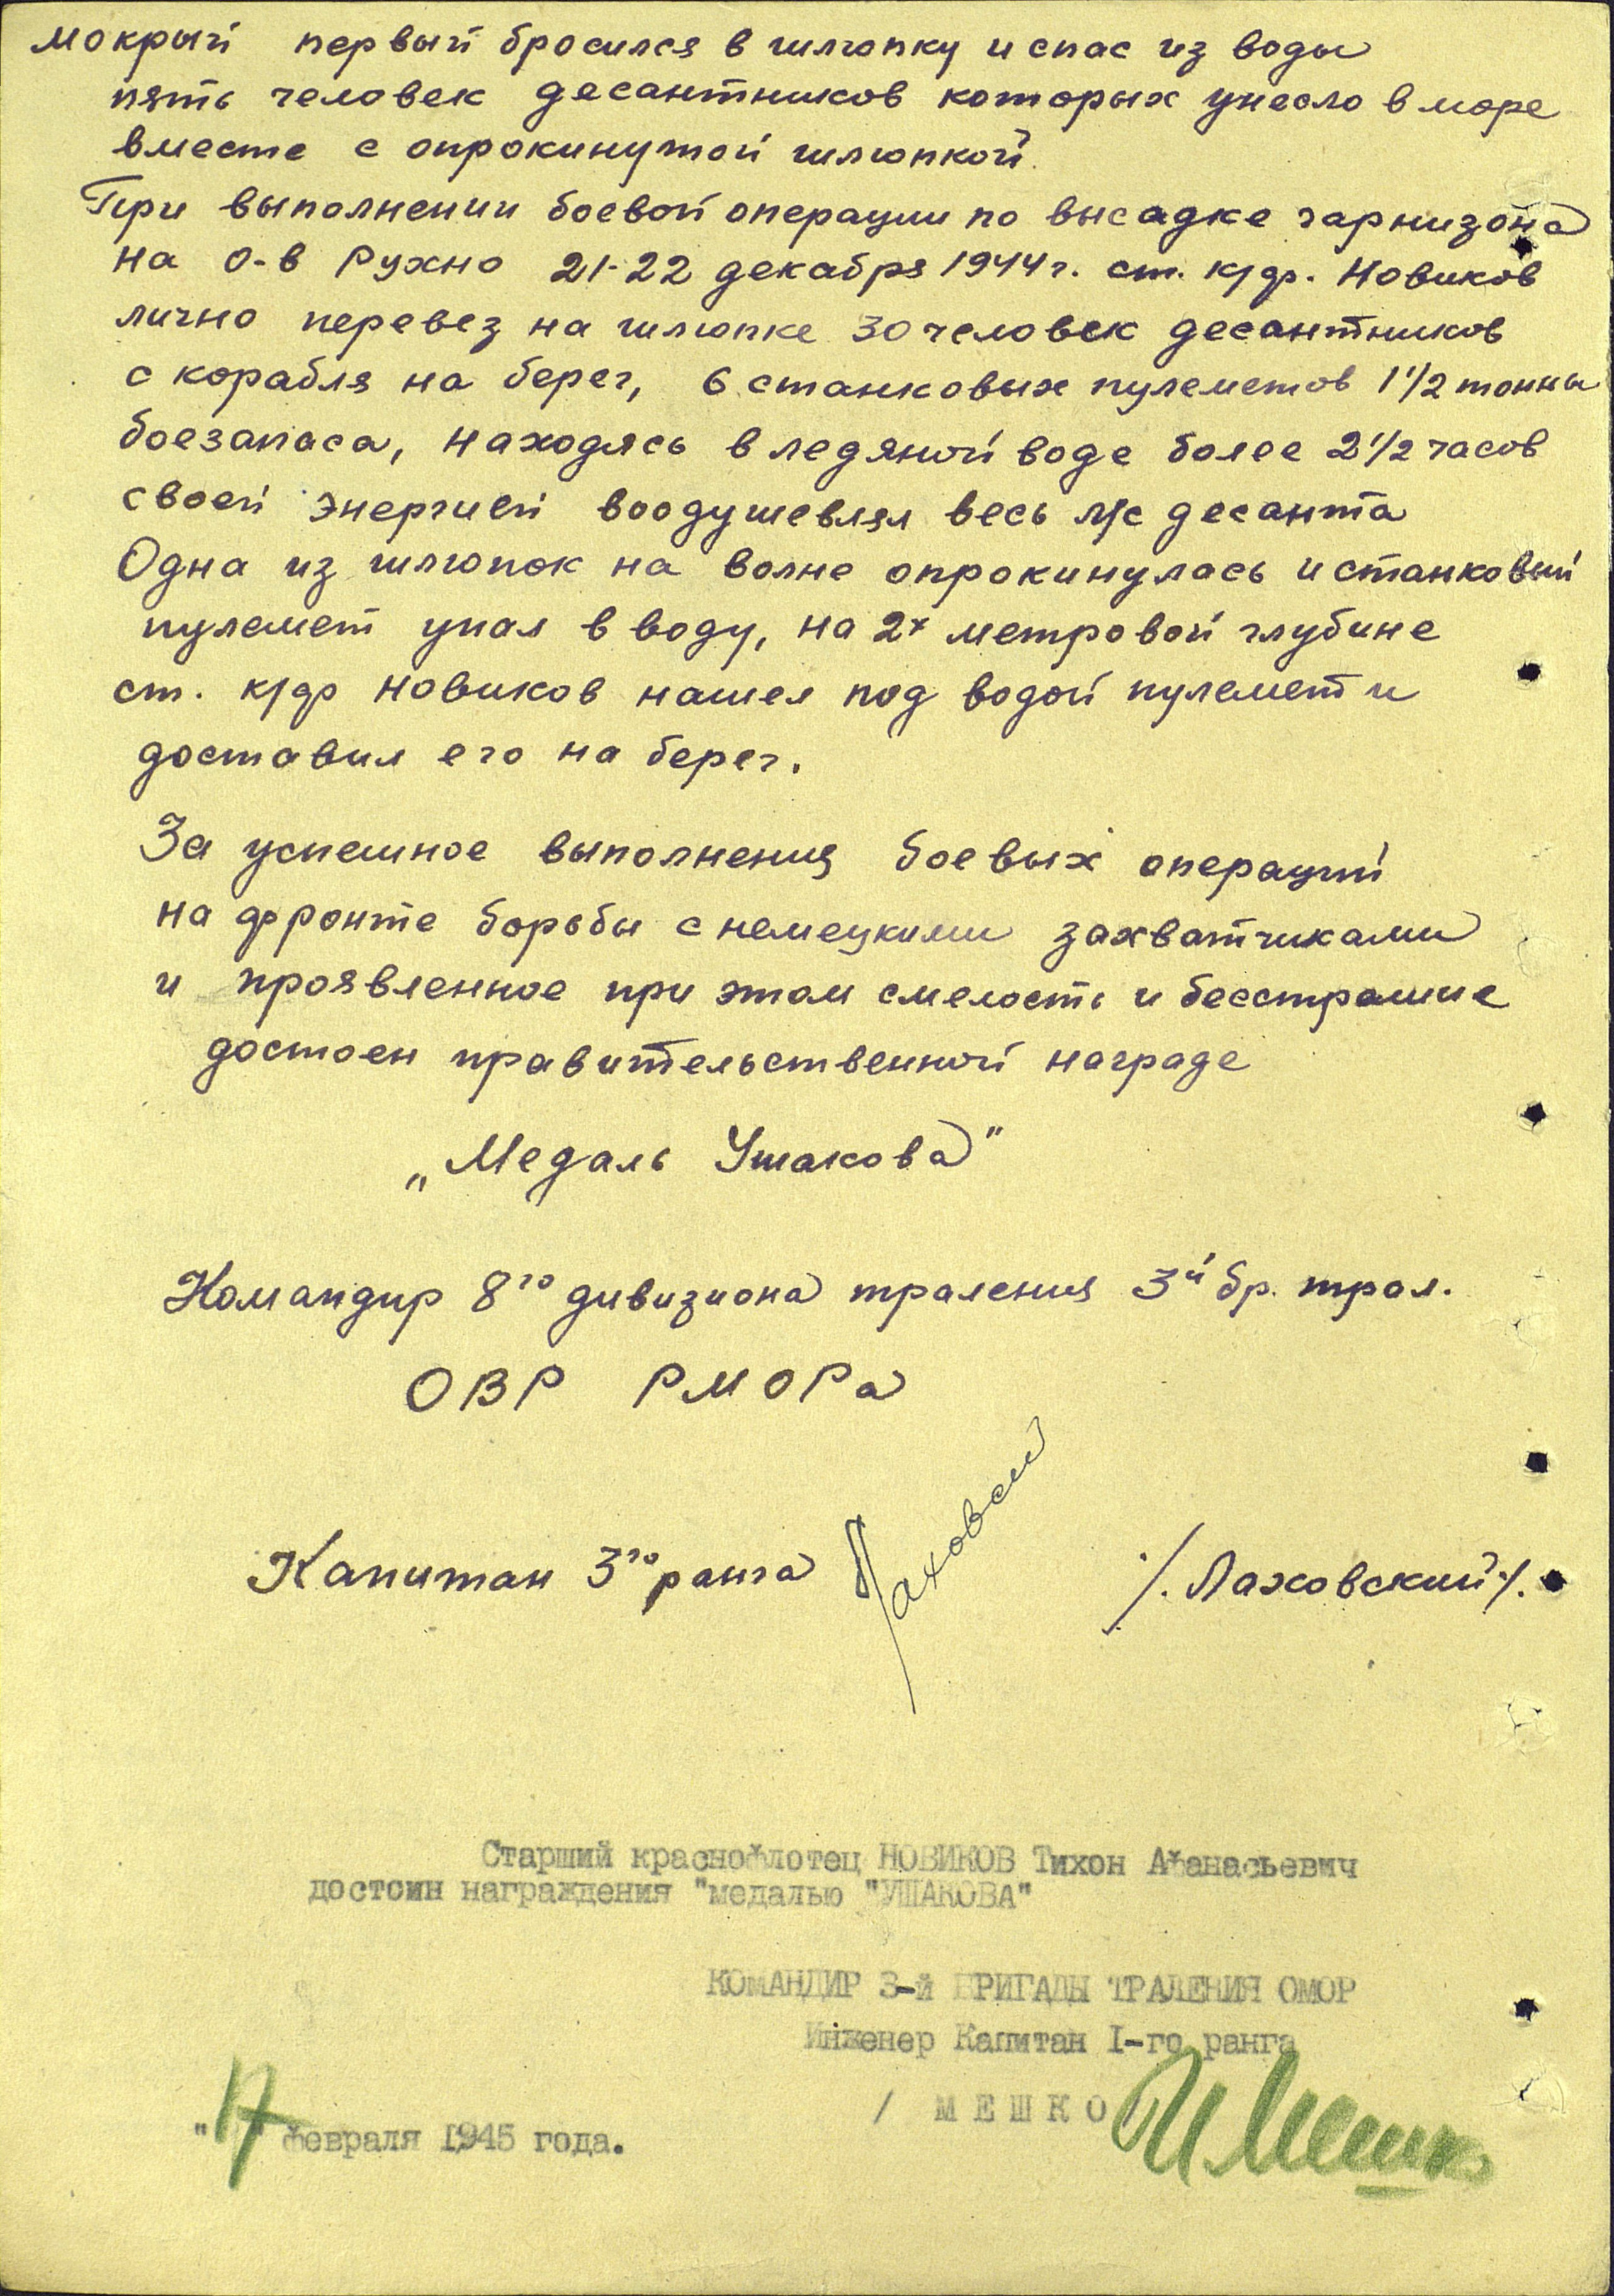 мокрый первый бросился в шлюпку и спас из воды
пять человек десантников которых унесло в море
вместе с опрокинутой шлюпкой.
При выполнении боевой операции по высадке гарнизона
на о-в Рухно 21-22 декабря 1944 г. ст. к/ф. Новиков
лично перевез на шлюпке 30 человек десантников
с корабля на берег, 6 станковых пулеметов 1 1/2 тонны
боезапаса, находясь в ледяной воде более 2 1/2 часов
своей энергией воодушевлял весь л/с десанта
Одна из шлюпок на волне опрокинулась и станковый
пулемет упал в воду, на 2х метровой глубине
ст. к/ф Новиков нашел под водой пулемет и
доставил его на берег.
За успешное выполнения боевых операций
на фронте борьбы с немецкими захватчиками
и проявленное при этом смелость и бесстрашие
достоен правительственной награде
„Медаль Ушакова"
Командир 8го дивизиона траления 3й бр. трал.
ОВР РМОРа
Капитан 3го ранга Лаховский /. Лаховский /.
Старший краснофлотец НОВИКОВ Тихон Афанасьевич
достоин награждения "медалью "УШАКОВА"
КОМАНДИР 3-й БРИГАДЫ ТРАЛЕНИЯ ОМОР
Инженер Капитан I-го ранга
/ МЕШКО И Мешко
"17" февраля 1945 года.